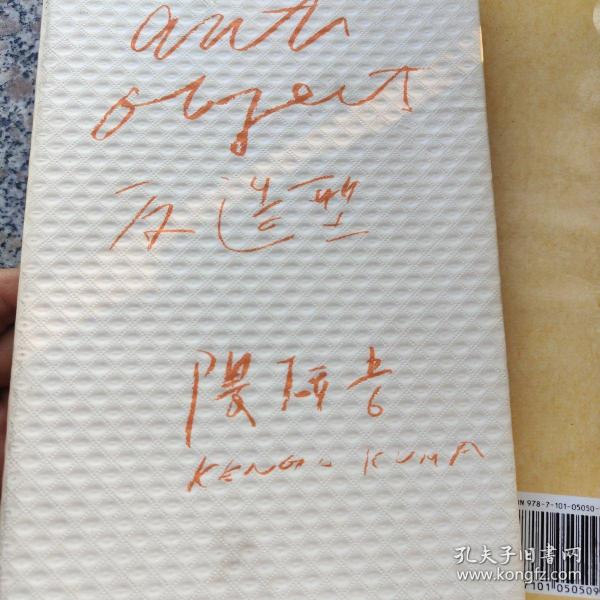 anti
object
反造型
隈研吾
KENGO KUMA
ISBN 978-7-101-05050-
101 05050
孔夫子旧书网
www.kongfz.com